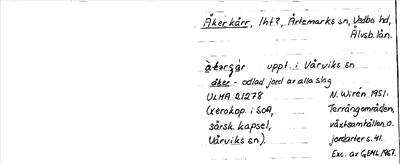 Åkerkärr, lht?, Ärtemarks sn, Vedbo hd,
Älvsb. län.
åkərçär uppt. i Vårviks sn
åker - odlad jord av alla slag
ULMA 21278 N. Wirén 1951.
(xerokop. i SOA, Terrängområden,
särsk. kapsel, växtsamhällen o.
Vårviks sn). jordarter s. 41.
Exc. av GEHL 1967.